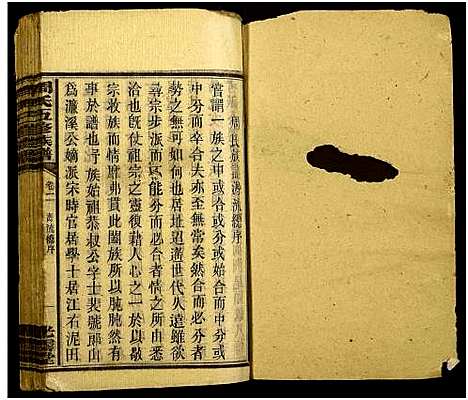 周氏族譜源流總序
嘗謂一族之中或合或分或始合而
中分而卒合夫亦至無常矣然合而必分者
勢之無可如何也居址迢遞世代久遠雖欲
尋宗步派而不能分而必合者情之所由悉
洽也旣仗祖宗之靈復藉人心之一於以敬
宗收族而情摩弗貫此闔族所以肫肫然有
事於譜也吾族始祖恭叔公字士裴號眉山
爲濂溪公嫡派宋時官居學士居江右泥田
周氏五修族譜
卷一
源流總序
一